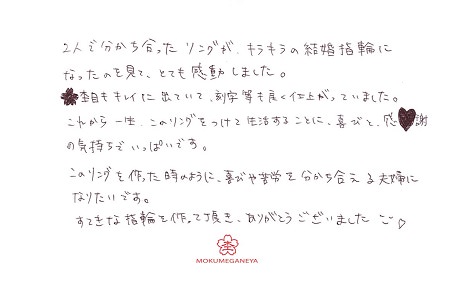 2人で分かち合ったリングが、キラキラの結婚指輪に
なったのを見て、とても感動しました。
杢目もキレイに出ていて、刻字等も良く仕上がっていました。
これから一生、このリングをつけて生活することに、喜びと、感謝
の気持ちでいっぱいです。
このリングを作った時のように、喜びや苦労を分かち合える夫婦に
なりたいです。
すてきな指輪を作って頂き、ありがとうございました
MOKUMEGANEYA